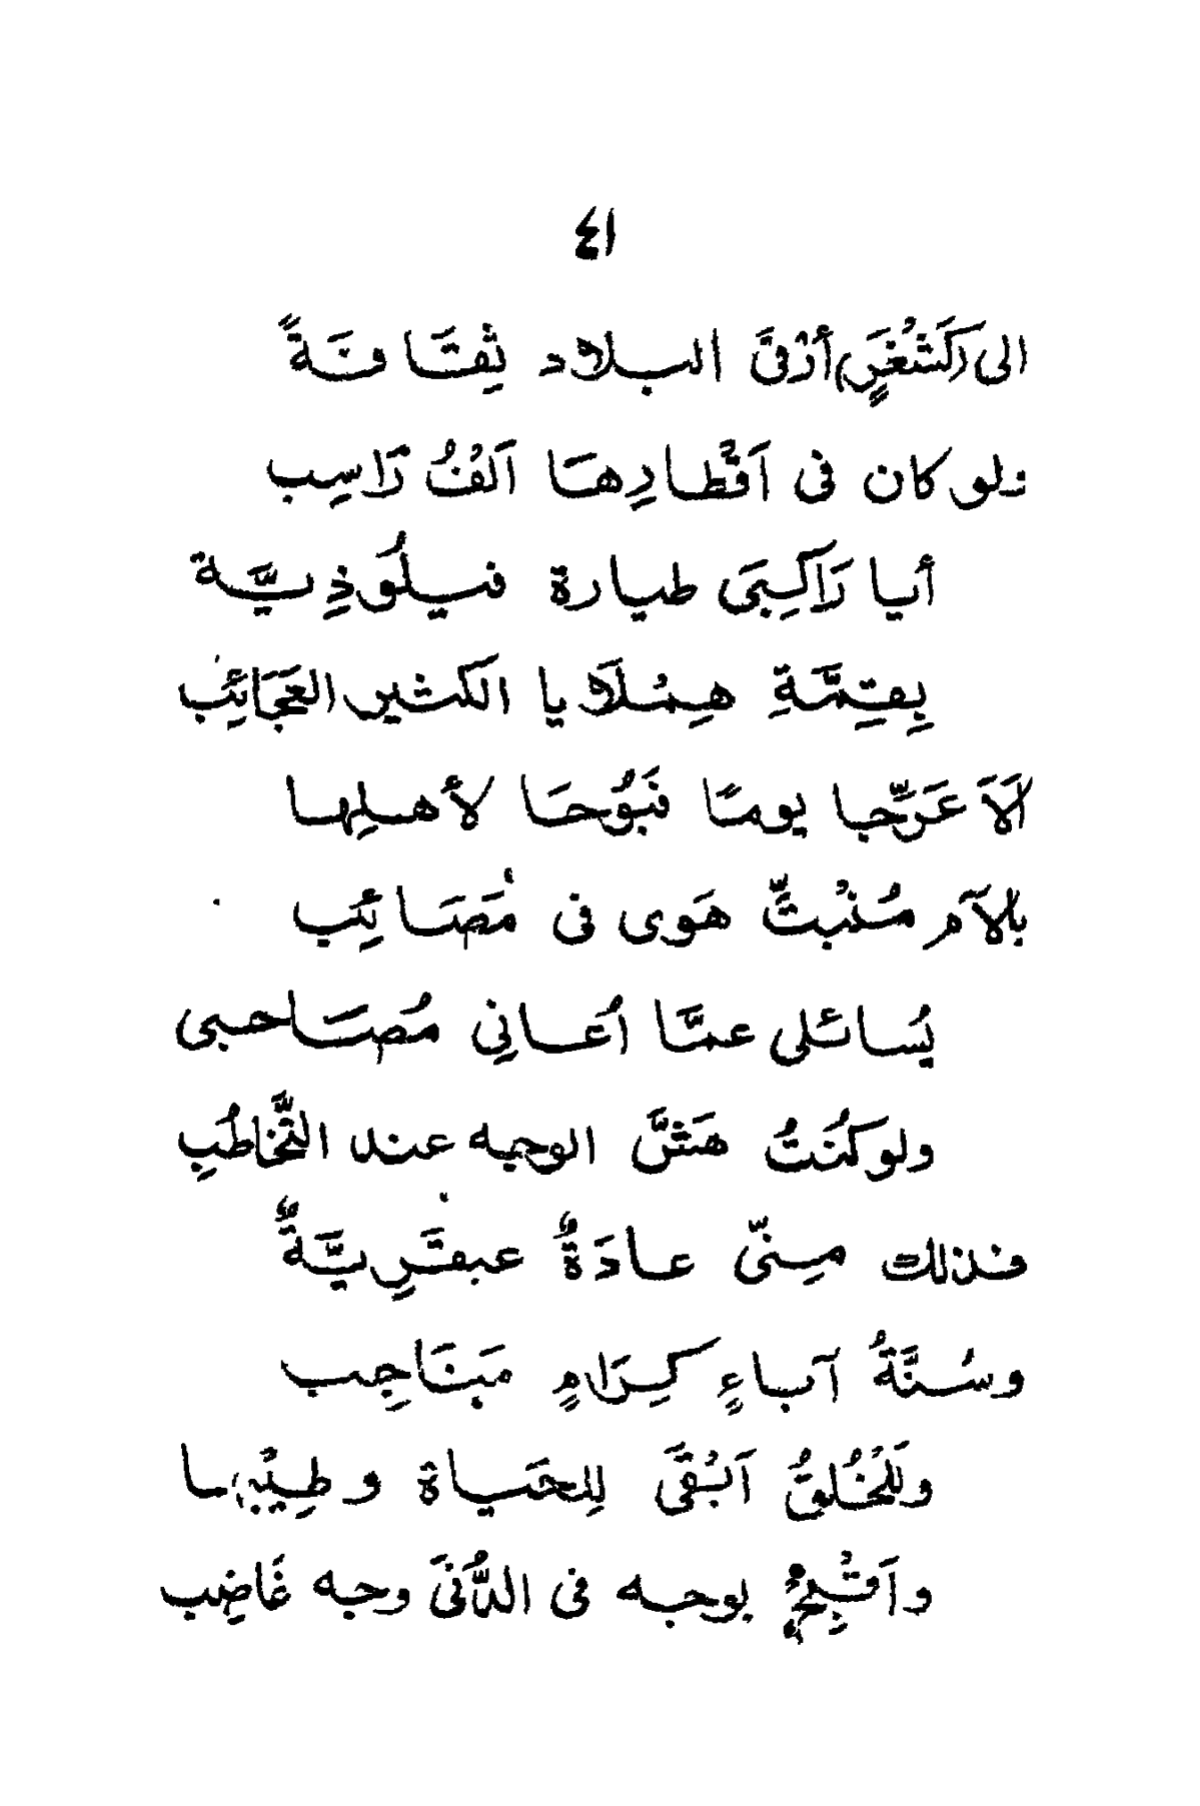 ٤١
الى (كَشْغَرٍ) أرْقَى البلاد ثِقَافَةً
ولو كان فى اَقْطارِهَا اَلْفُ رَاسِب
أيا رَاكِبَى طيارة فيلُوذِيَّة
بِقِمَّةِ هِمُلَايا الكثير العَجَائِب
اَلاَ عَرِّجا يومًا فَبُوْحَا لأهلِها
بالآم مُنْبتٍّ هَوى فى مَصَائِب
يُسائلى عمَّا اُعانِي مُصَاحبى
ولو كُنَتُ هَشَّ الوجه عند التَّخاطُبِ
فذلك مِنّى عادَةٌ عبقَرِيَّةٌ
وسُنَّةُ آباءٍ كِرَامٍ مَنَاجِب
ولَلْخُلقُ اَبْقَى لِلحَياة وطِيْبِها
واَقْبِحْ بوجه فى الدُّنَى وجه غَاضِب